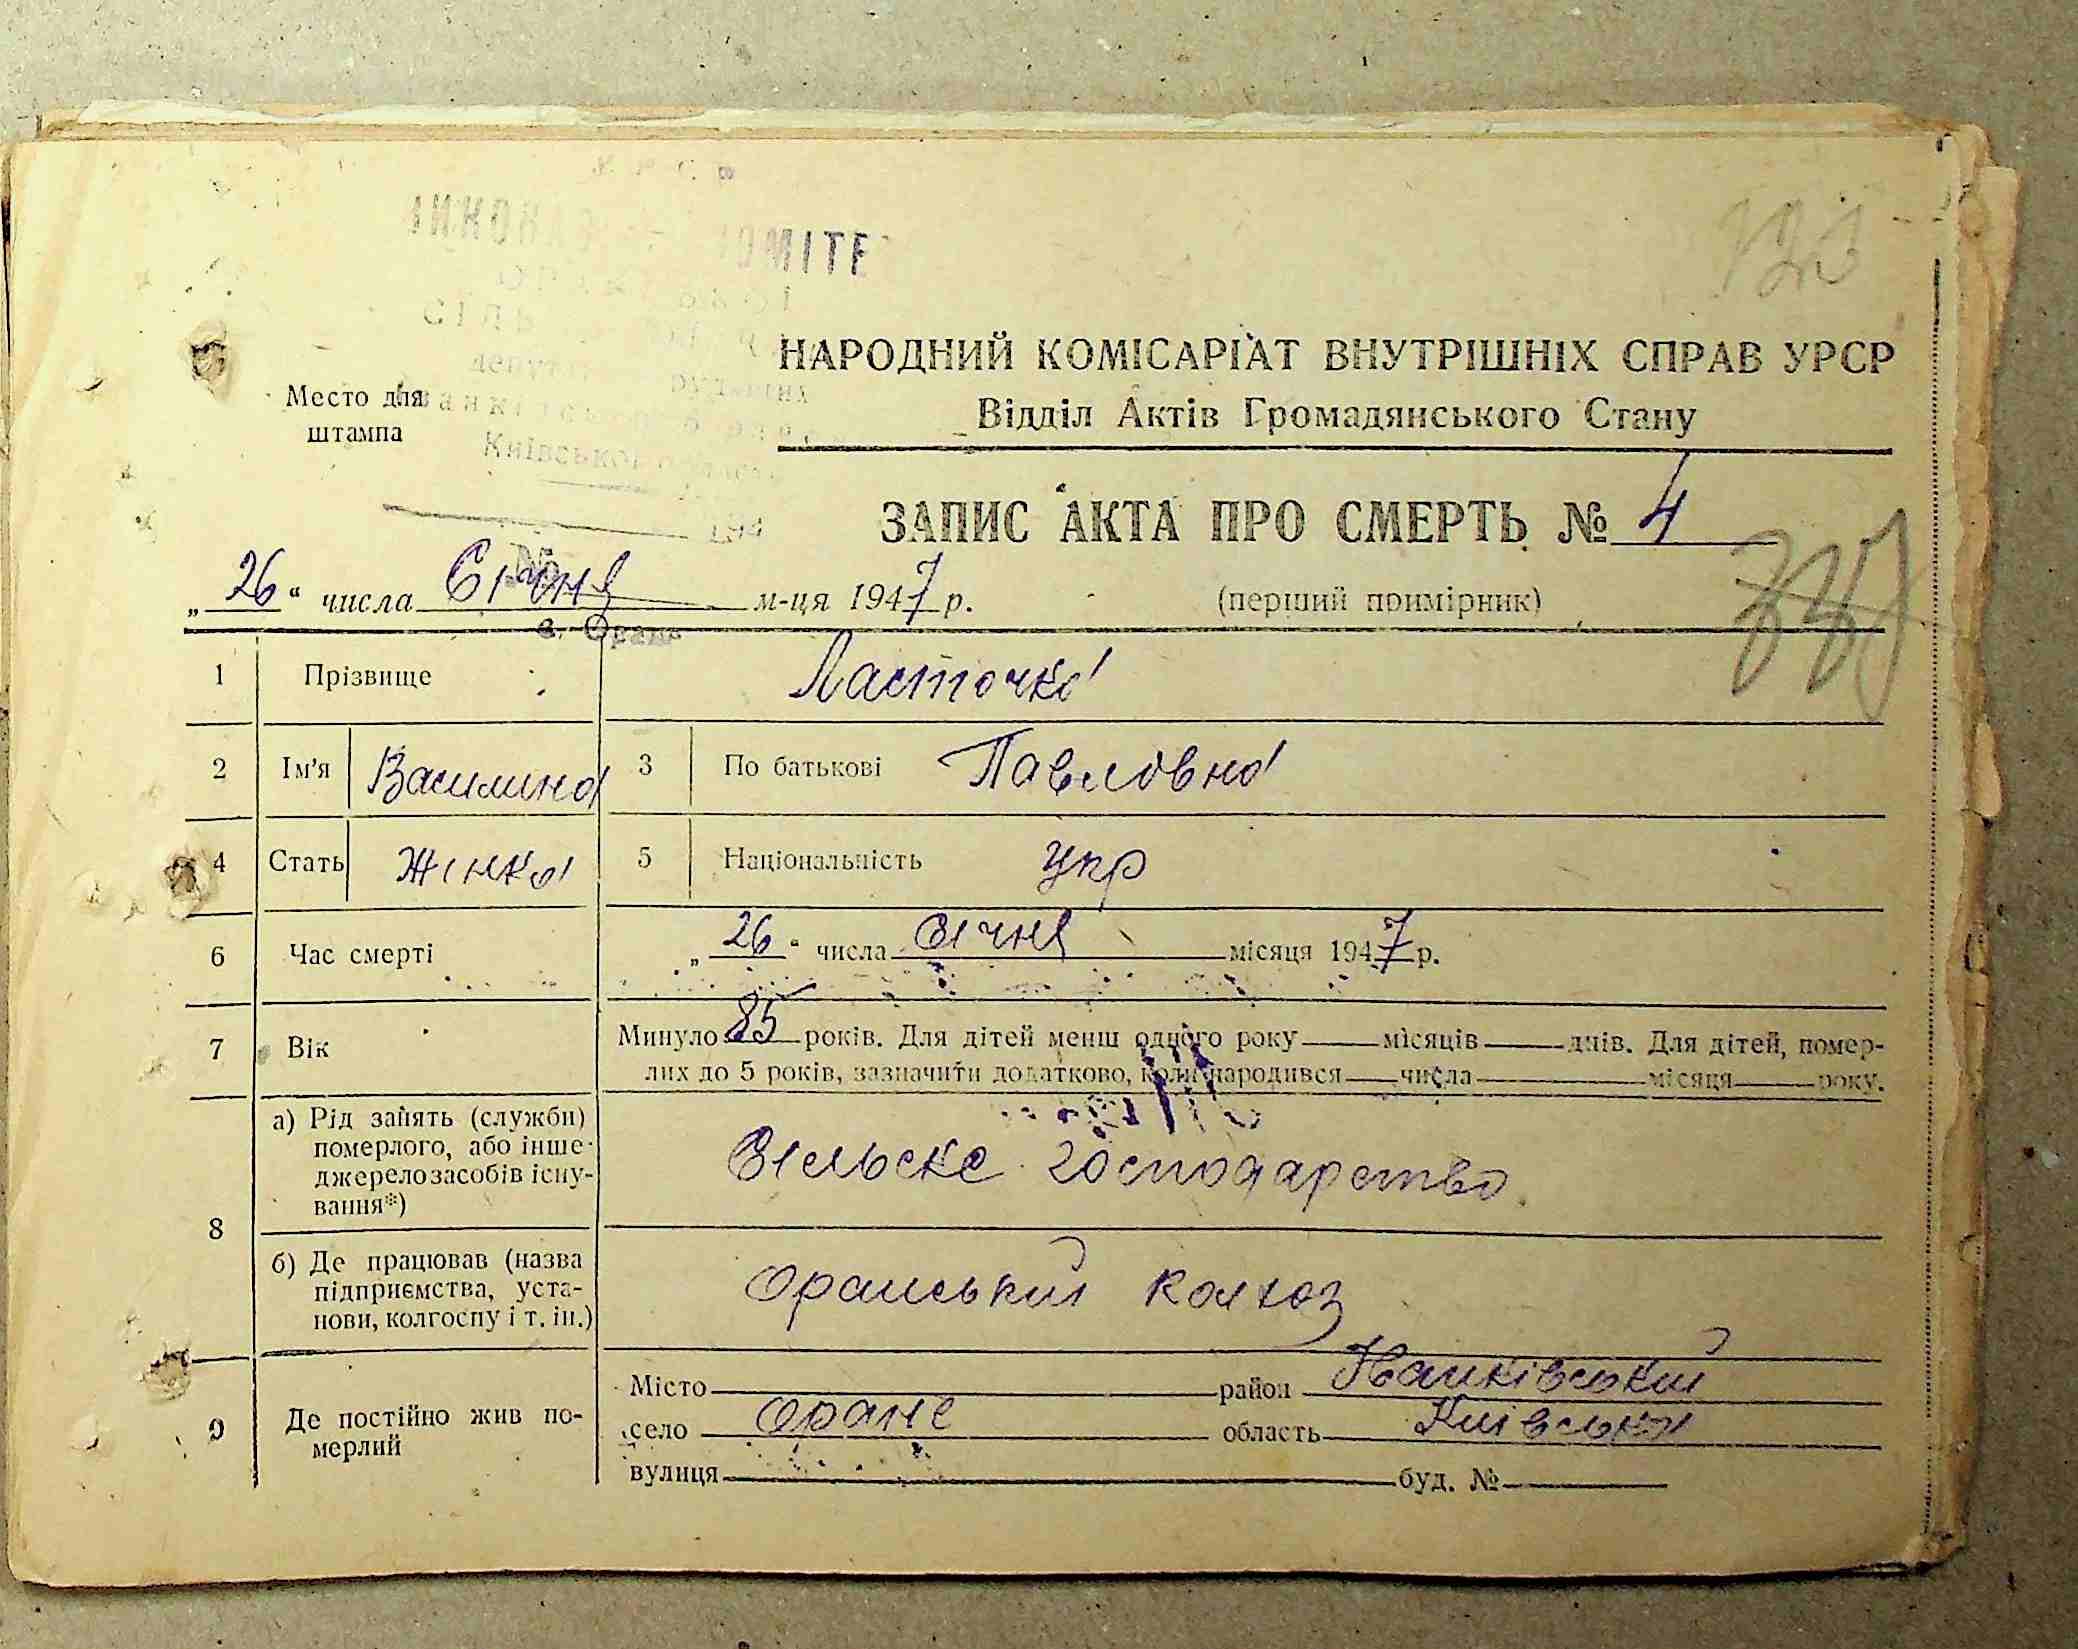 ВИКОНАВ КОМІТЕ
Київської
194
№
с. Оране
Место для
штампа
НАРОДНИЙ КОМІСАРІАТ ВНУТРІШНІХ СПРАВ УРСР
Відділ Актів Громадянського Стану
ЗАПИС АКТА ПРО СМЕРТЬ № 4
„26“ числа Січня м-ця 1947 р. (перший примірник)
1 Прізвище Ласточка
2 Ім'я Василина 3 По батькові Павловна
4 Стать Жінка 5 Національність Укр
6 Час смерті „26“ числа січня місяця 1947 р.
7 Вік Минуло 85 років. Для дітей менш одного року місяців днів. Для дітей, помер-
лих до 5 років, зазначити додатково, коли народився числа місяця року.
8 а) Рід занять (служби)
померлого, або інше
джерело засобів існу-
вання*) Сільське господарство
б) Де працював (назва
підприємства, уста-
нови, колгоспу і т. ін.) Оранський колхоз
9 Де постійно жив по-
мерлий
Місто район Іванківський
село Оране область Київська
вулиця буд. №